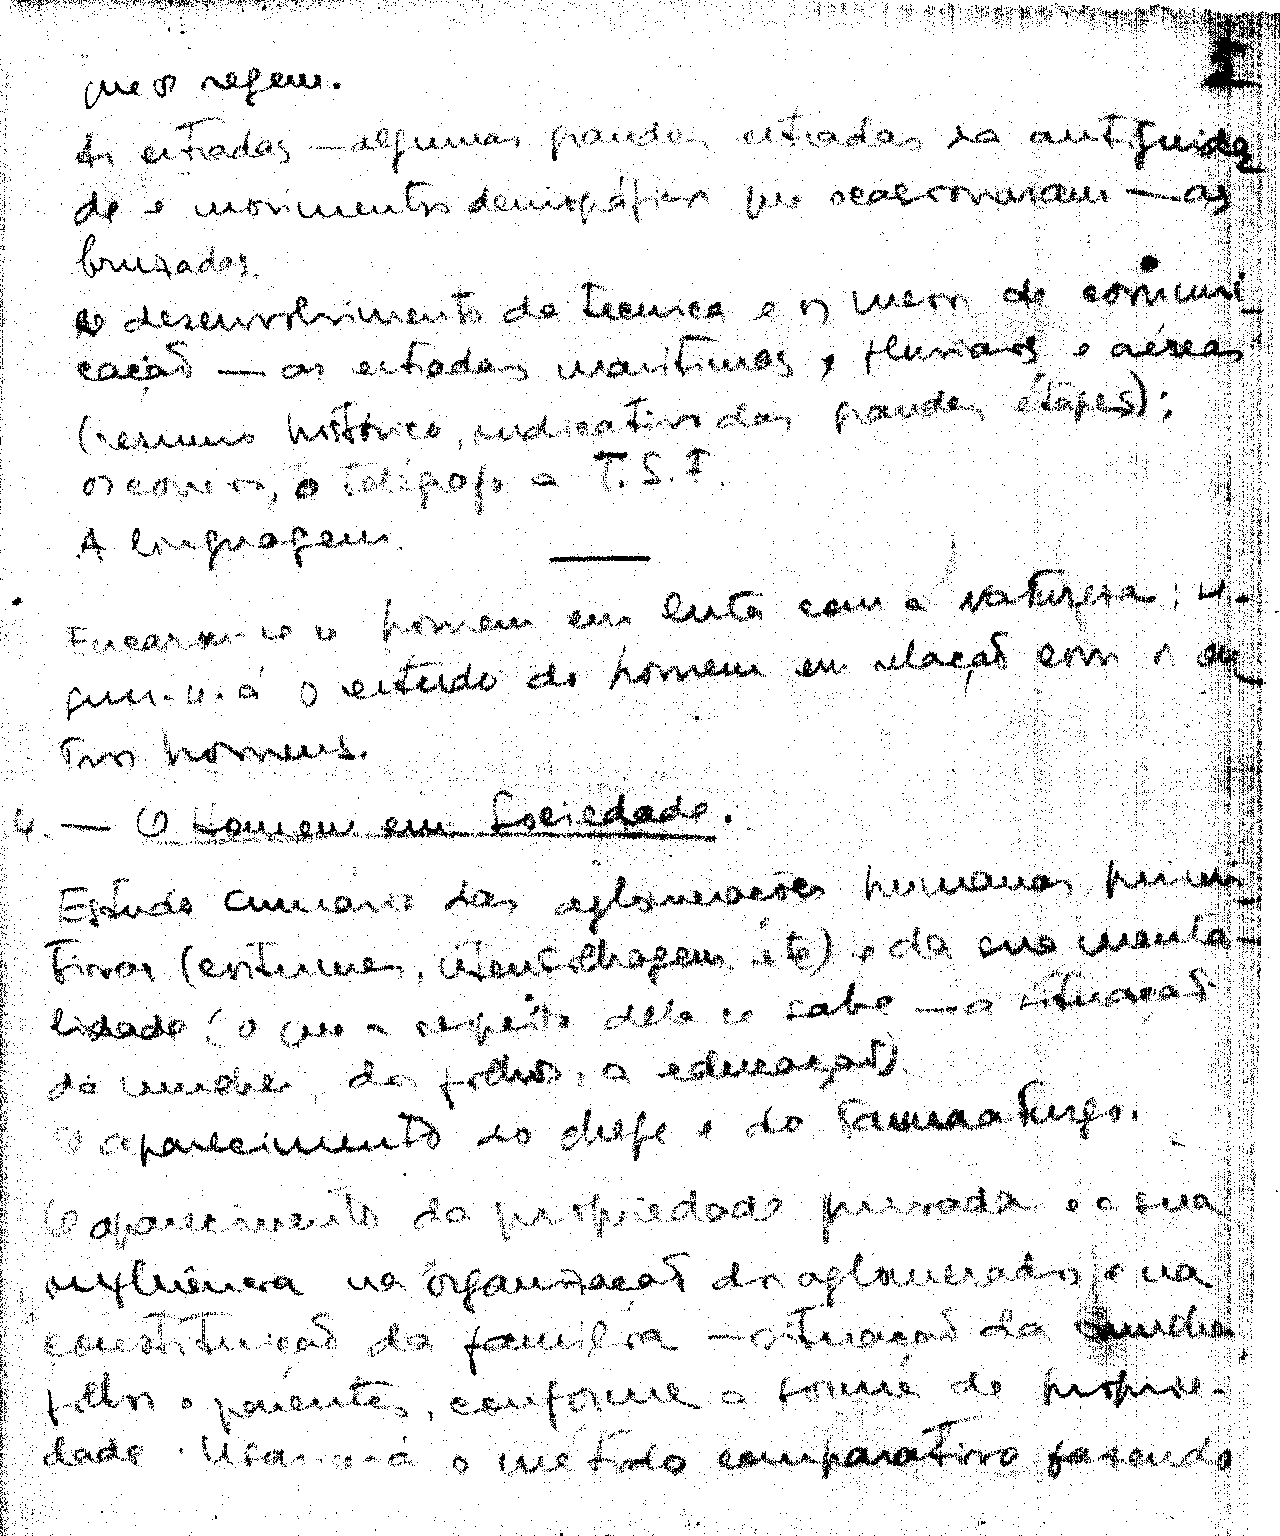 que os regem.
As estradas — algumas grandes estradas na antiguida
de e movimentos demográficos que ocasionaram — as
cruzadas.
O desenvolvimento da técnica e os meios de comuni
cação — as estradas maritimas, fluviais e aéreas
(resumo histórico, indicativo das grandes étapes);
os correios, o telégrafo a T. S. F.
A linguagem.
Encarou-se o homem em luta com a natureza; se-
guir-se-á o estudo do homem em relação com os ou
tros homens.
4. — O Homem em Sociedade.
Estudo sumário das aglomerações humanas primi
tivas (costumes, utensilhagem, etc) e da sua menta-
lidade (o que a respeito dela se sabe — a situação
da mulher, dos filhos, a educação).
O aparecimento do chefe e do taumaturgo.
O aparecimento da propriedade privada e a sua
influência na organização dos aglomerados e na
constituição da família — situação da mulher,
filhos e parentes, conforme a forma de proprie-
dade. Usar-se-á o método comparativo fazendo